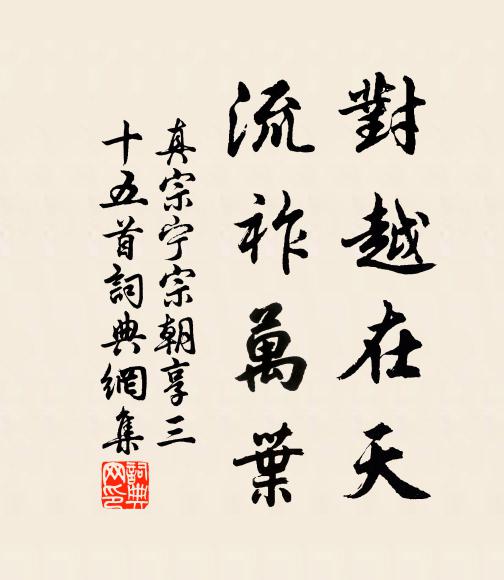 對越在天
流祚萬葉
真宗宁宗朝享三
十五首詞典網集
詞典
网印